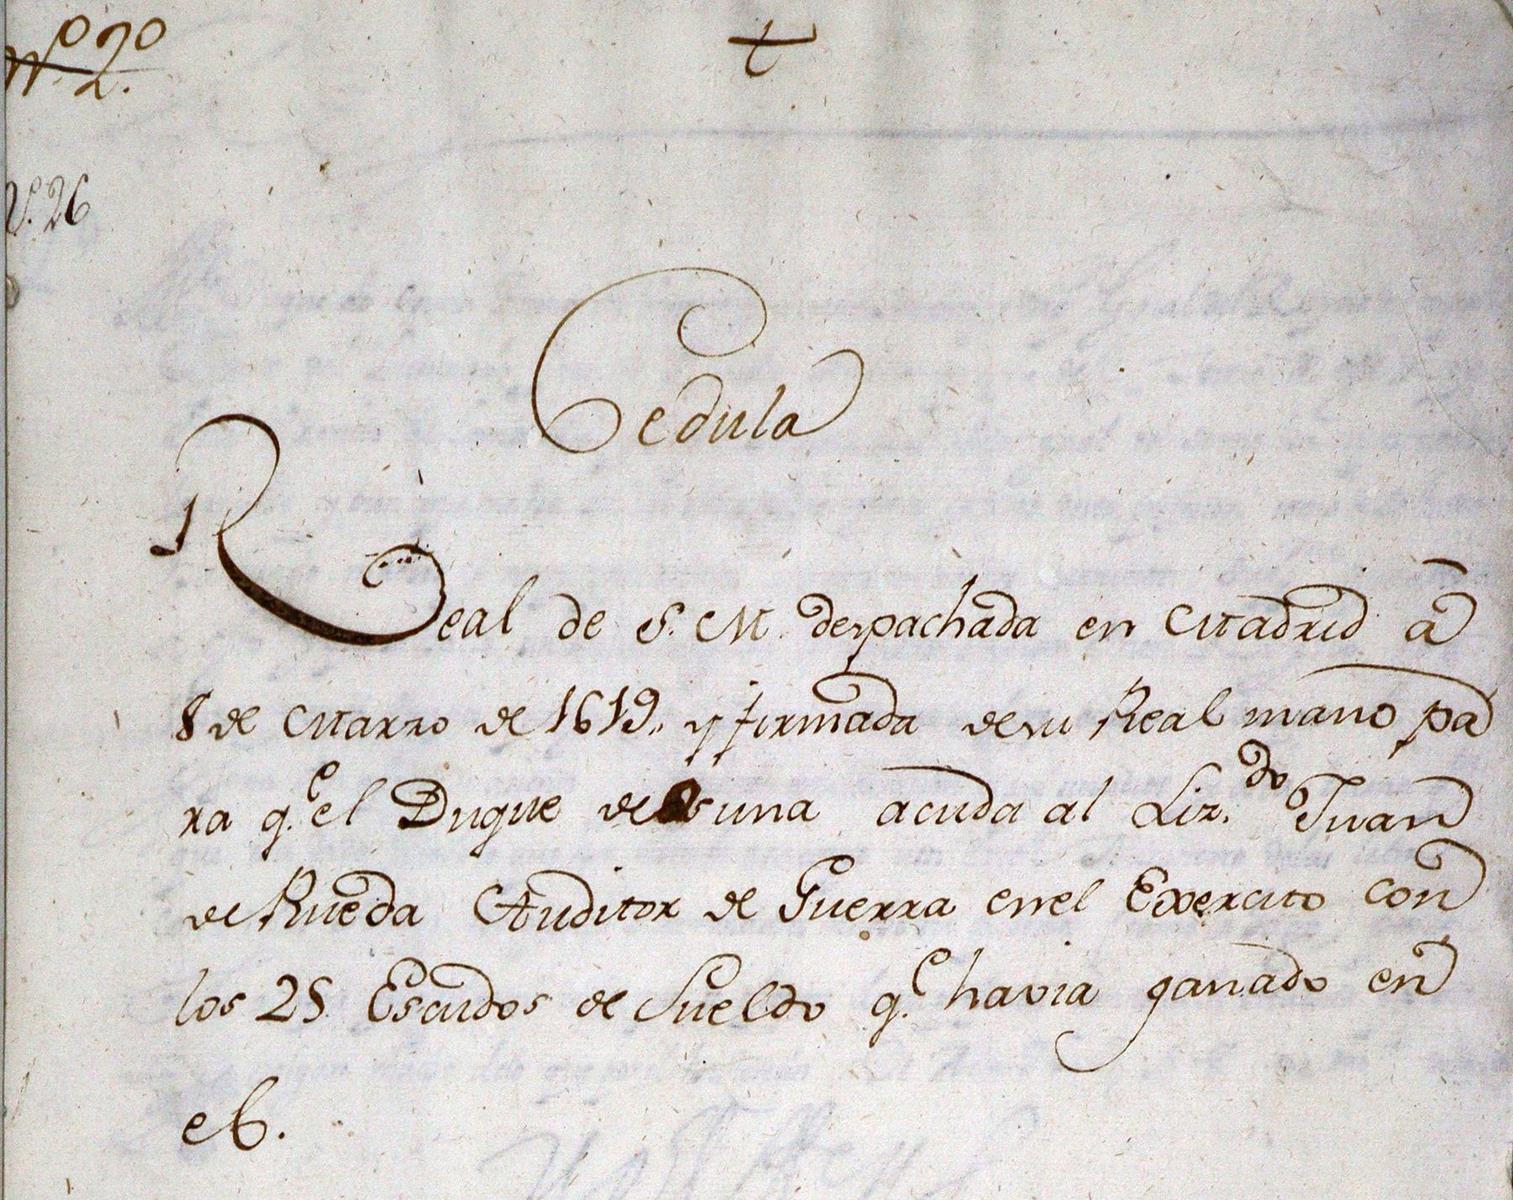 Nº 2º
Nº 2.
N. 26
Cedula
Real de S. M. despachada en Madrid â
8 de Marzo de 1619,, y firmada de su Real mano pa
ra q.e el Duque de Osuna acuda al Liz.do Juan
de Rueda Auditor de Guerra en el Exercito con
los 25 Escudos de Sueldo q.e havia ganado en
el.